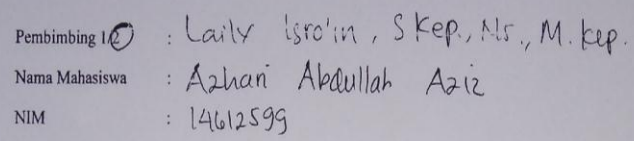 Pembimbing 1/2 : Laily Isro'in, S Kep., Ns., M. Kep.
Nama Mahasiswa : Azhari Abdullah Aziz
NIM : 14612599